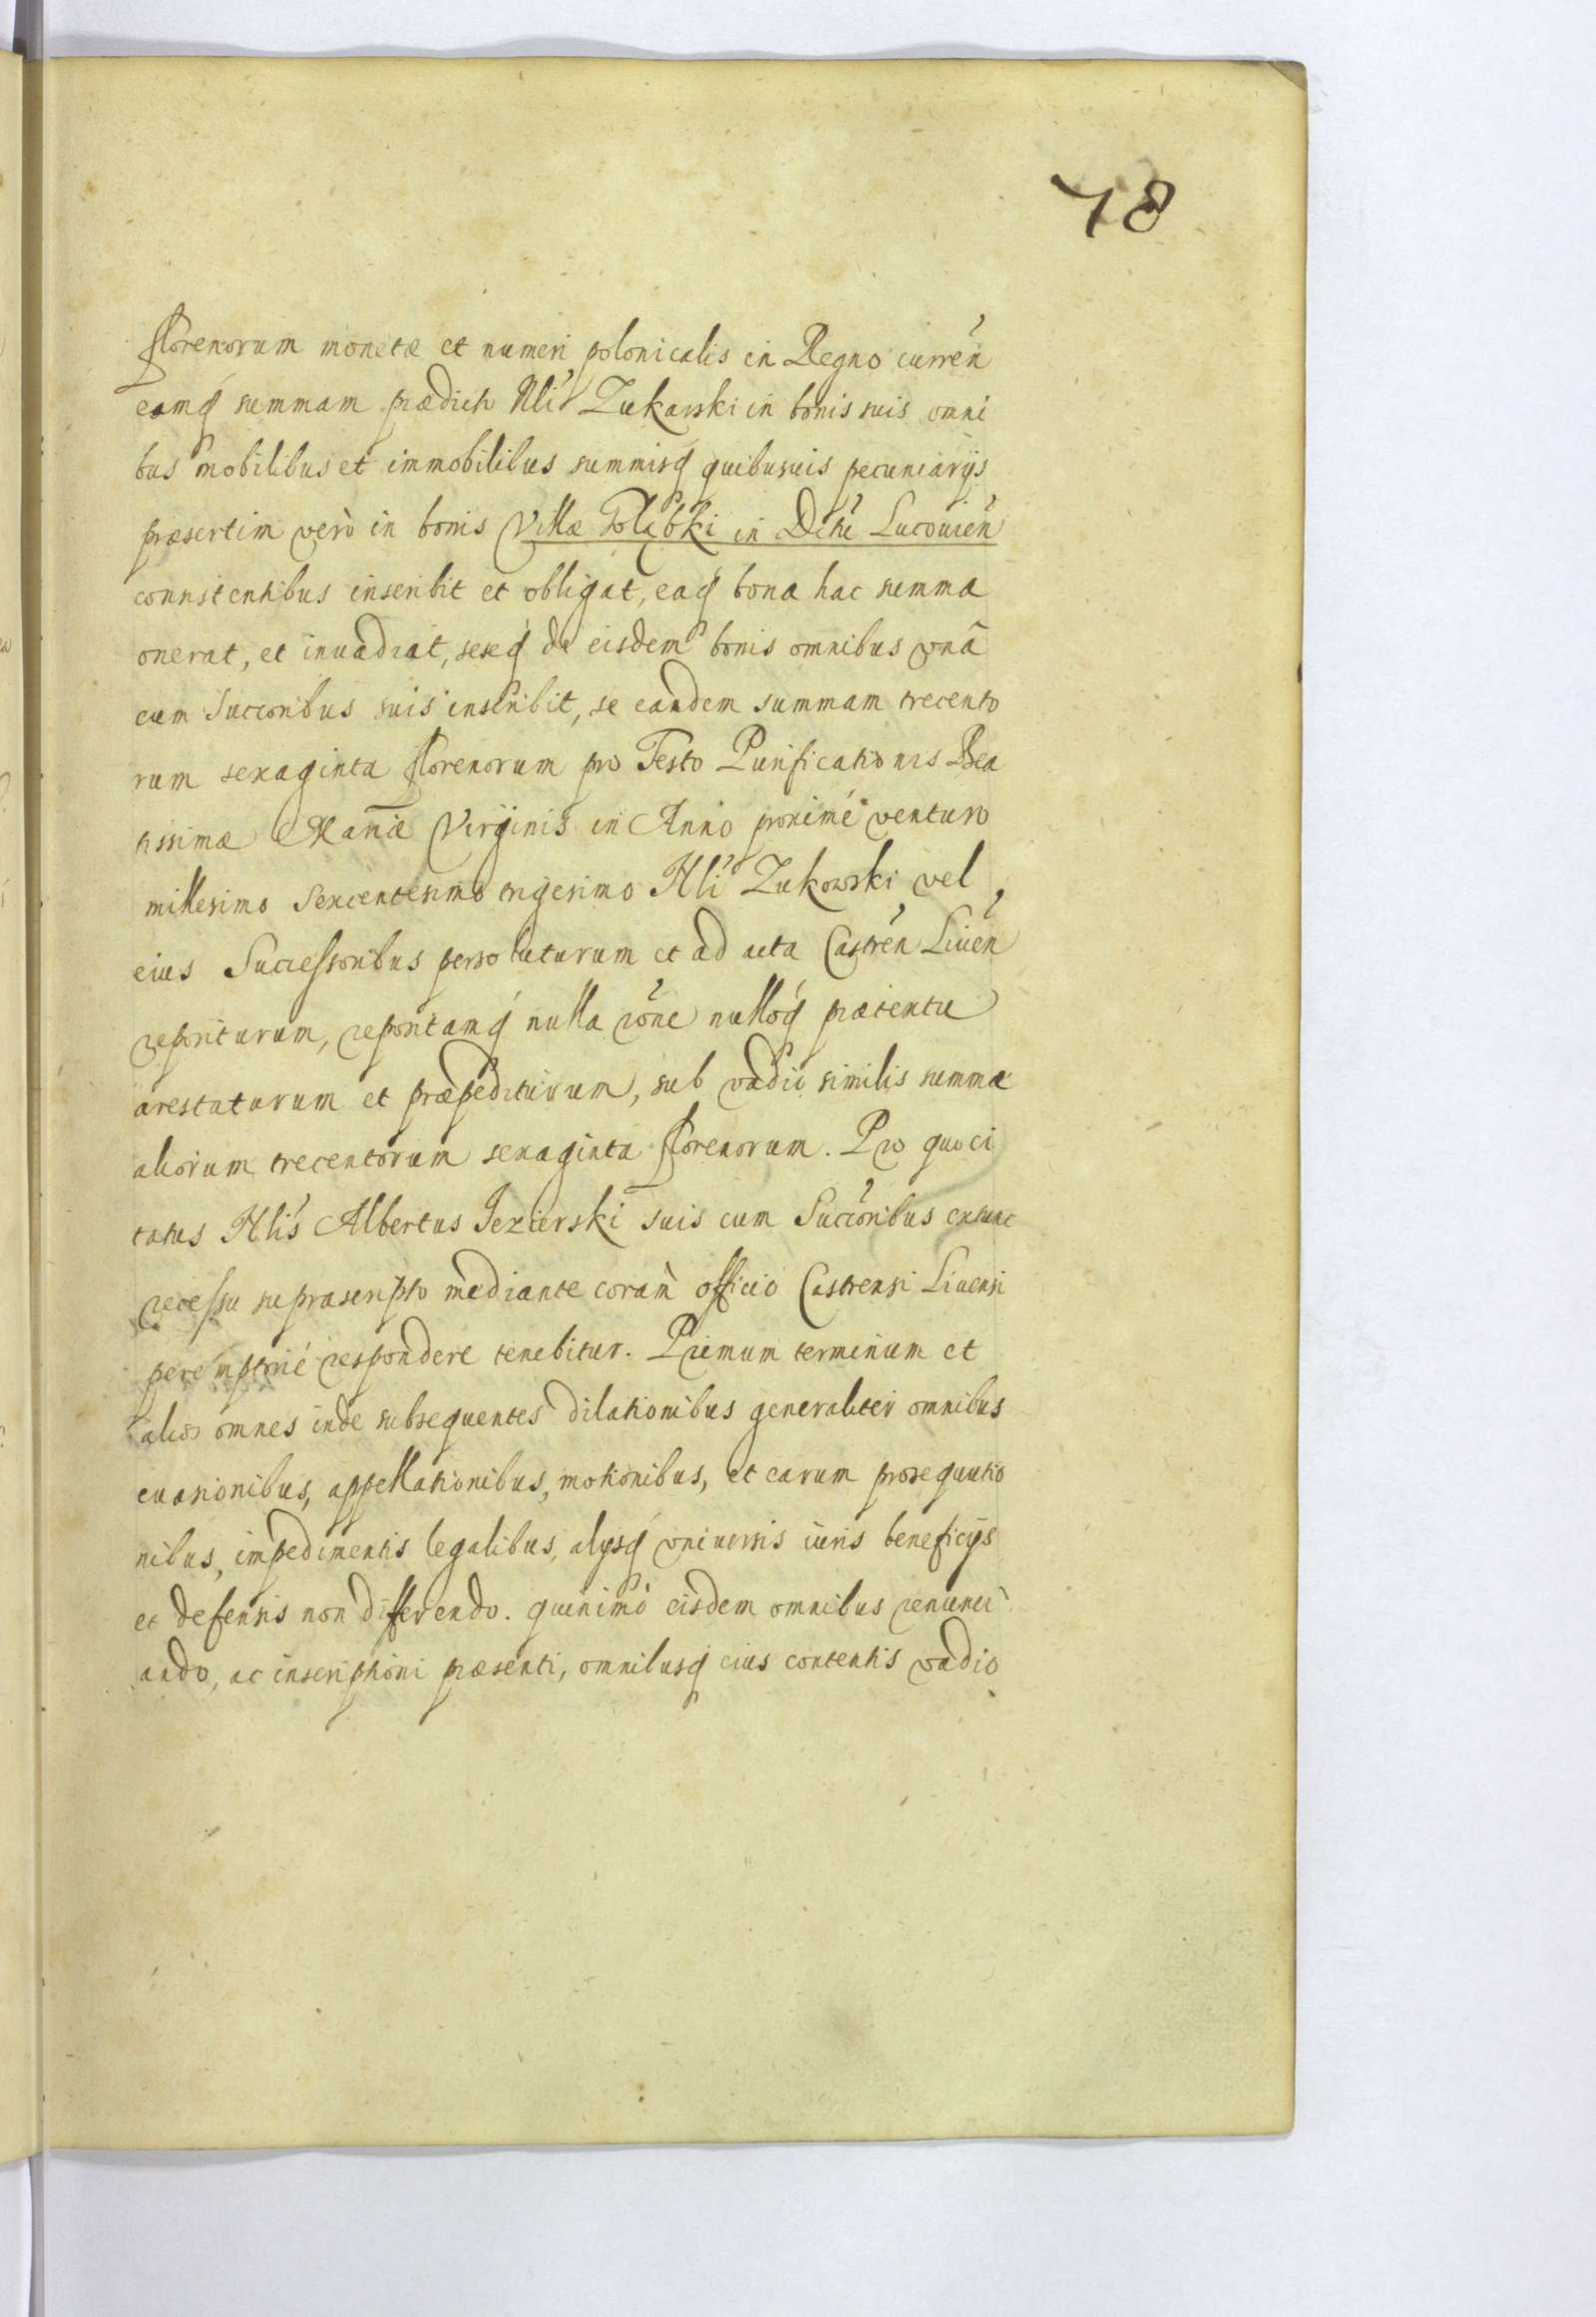 48
florenorum monetæ et numeri polonicalis in Regno curren̄
eamq́ summam prædicto Nli Zukowski in bonis suis omni
bus mobilibus et immobilibus summisq́ quibusuis pecuniarijs
præsertim verò in bonis Villæ Gołąbki in Dctu Lucouien̄
consistentibus inscribit et obligat, eaq́ bona hac summa
onerat, et inuadiat, seseq́ de eisdem bonis omnibus vnâ
cum Succoribus suis inscribit, se eandem summam trecento
rum sexaginta florenorum pro Festo Purificationis Bea
tissimæ Mariæ Virginis in Anno proximé venturo
millesimo Sexcentesimo trigesimo Nli Zukowski vel
eius Successoribus persoluturum et ad acta Castren̄ Liuen̄
repositurum, repositamq́ nulla rōne nulloq́ prætextu
arestaturum et præpediturum, sub vadio similis summæ
aliorum trecentorum sexaginta florenorum. Pro quo ci
tatus Nlis Albertus Jezierski suis cum Succoribus extunc
recessu suprascripto mediante coram officio Castrensi Liuensi
peremptorié respondere tenebitur. Primum terminum et
alios omnes inde subsequentes dilationibus generaliter omnibus
euasionibus, appellationibus, motionibus, et earum prosequutio
nibus, impedimentis legalibus, alysq́ vniuersis iuris beneficijs
et defensis non differendo. quinimò eisdem omnibus renunci
ando, ac inscriptioni præsenti, omnibusq́ eius contentis vadio